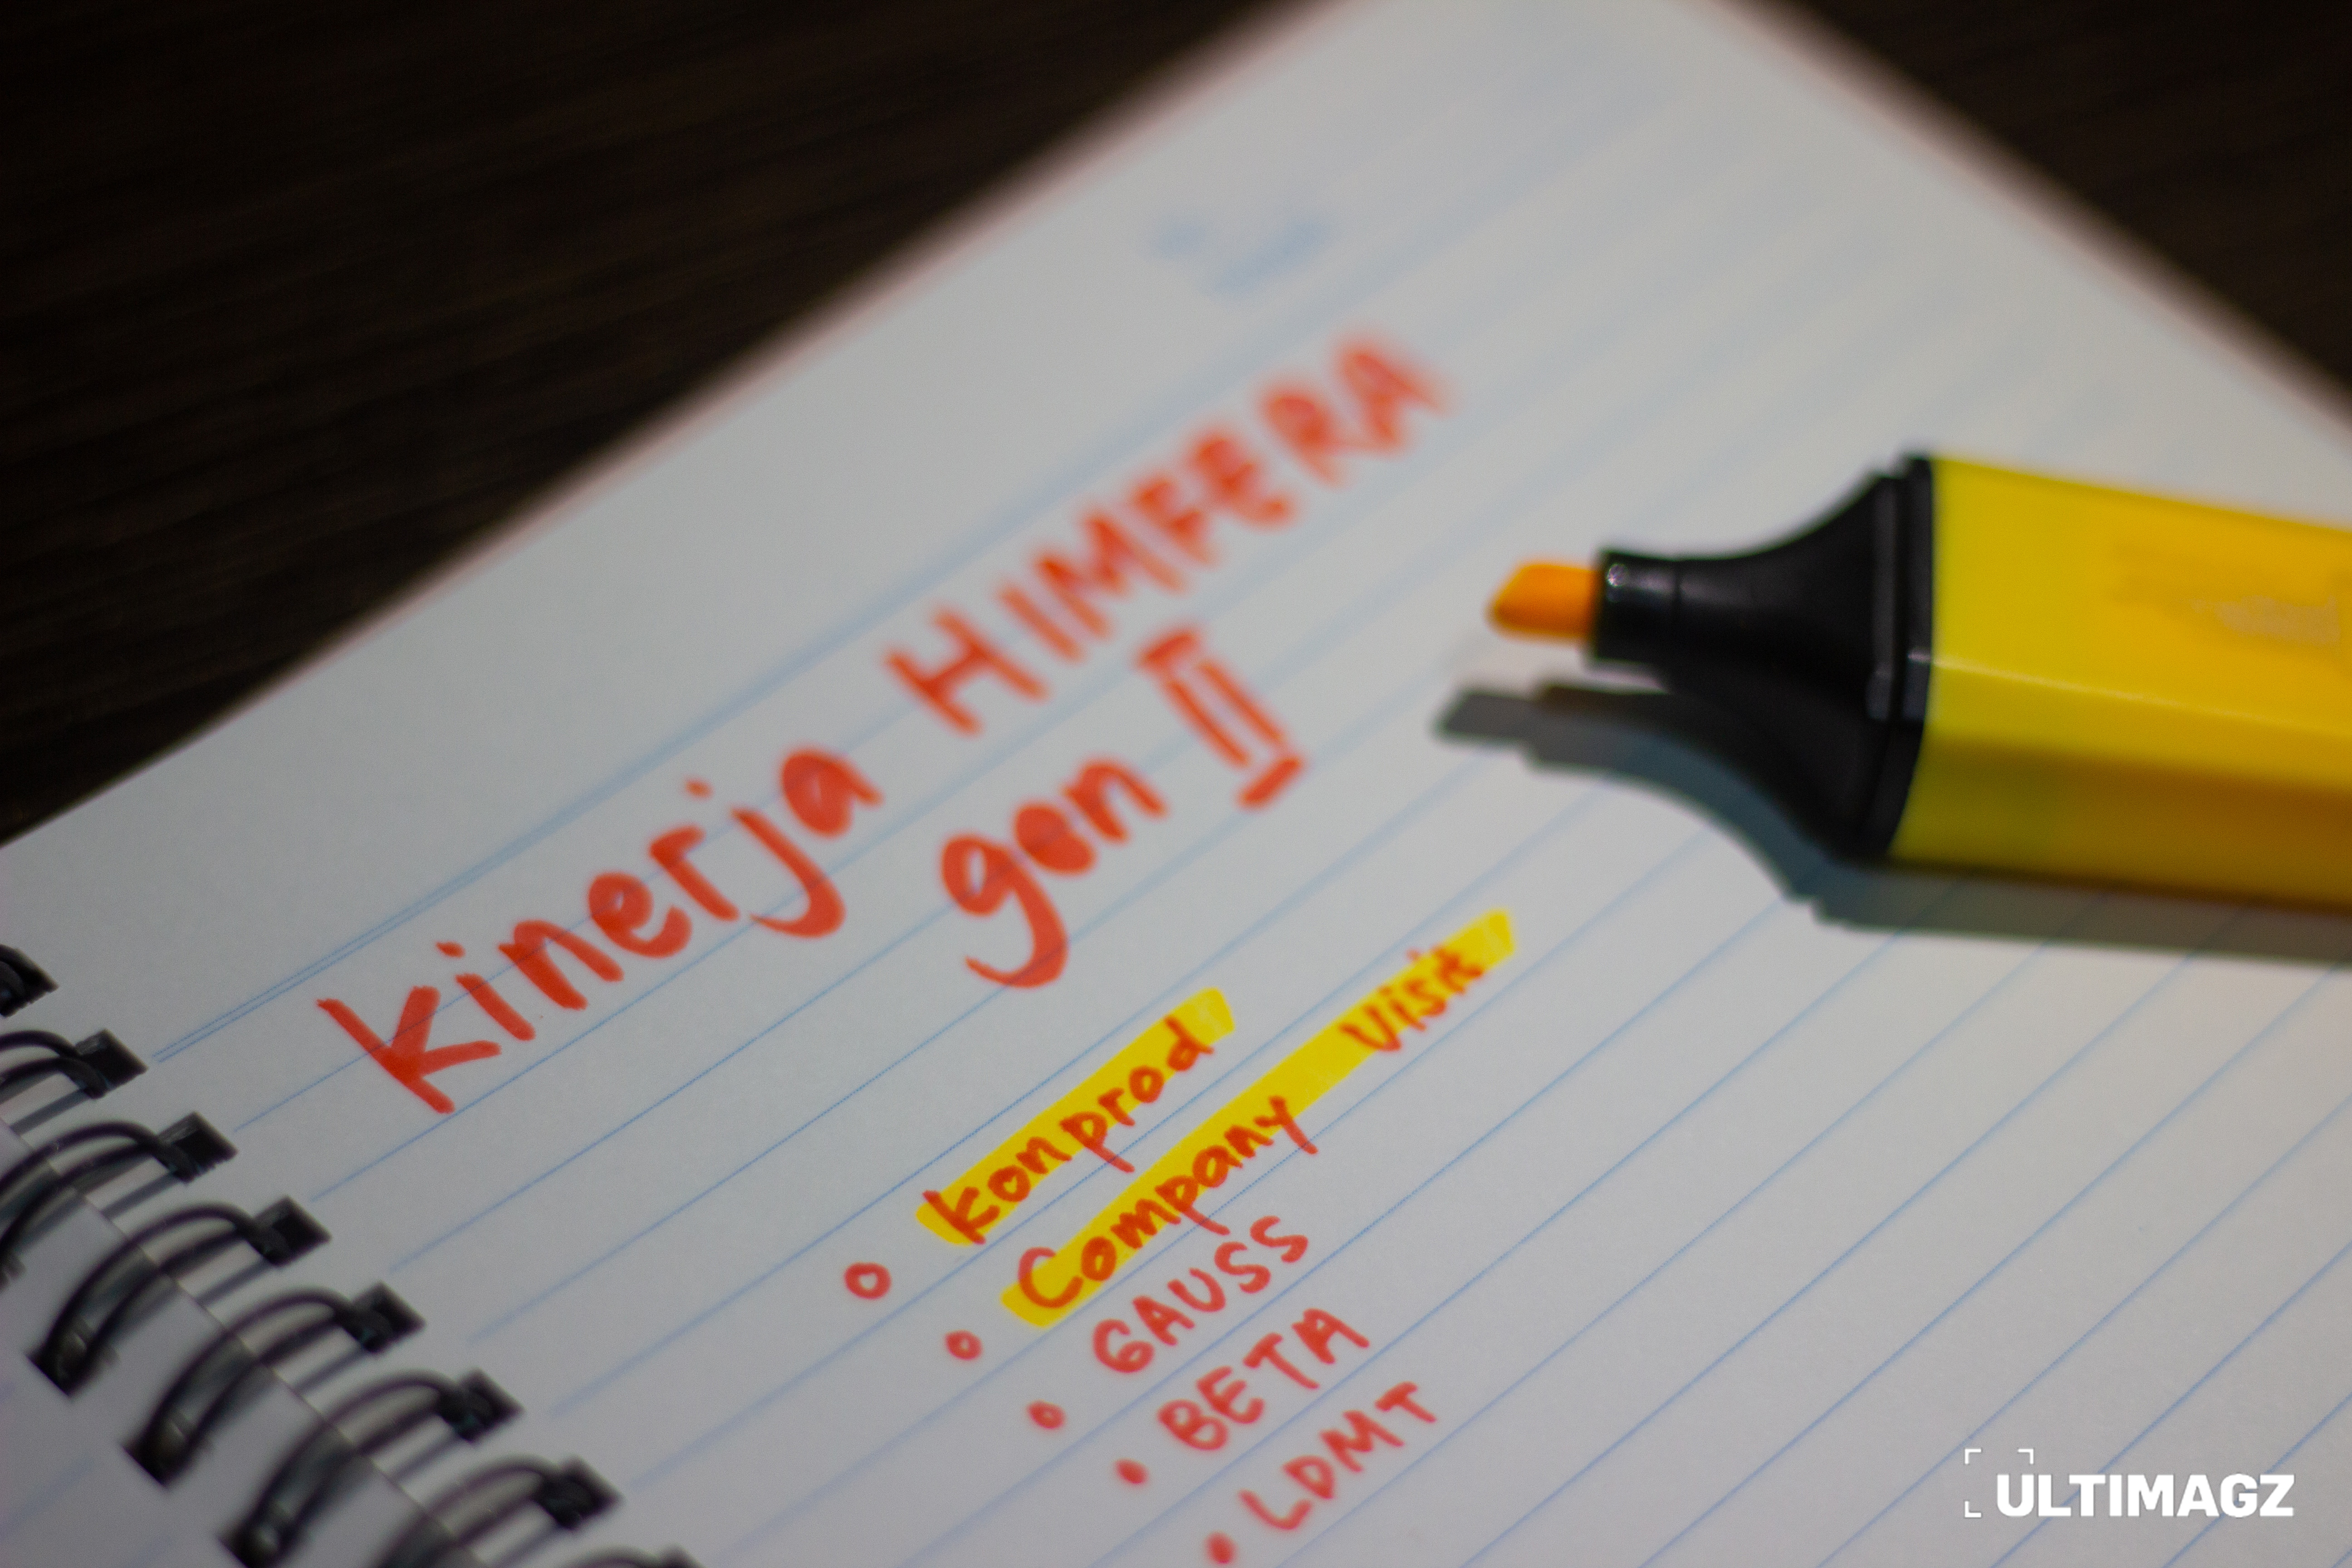 kinerja HIMFERA
gen II
• konprod
• Company Visit
• GAUSS
• BETA
• LDMT
ULTIMAGZ